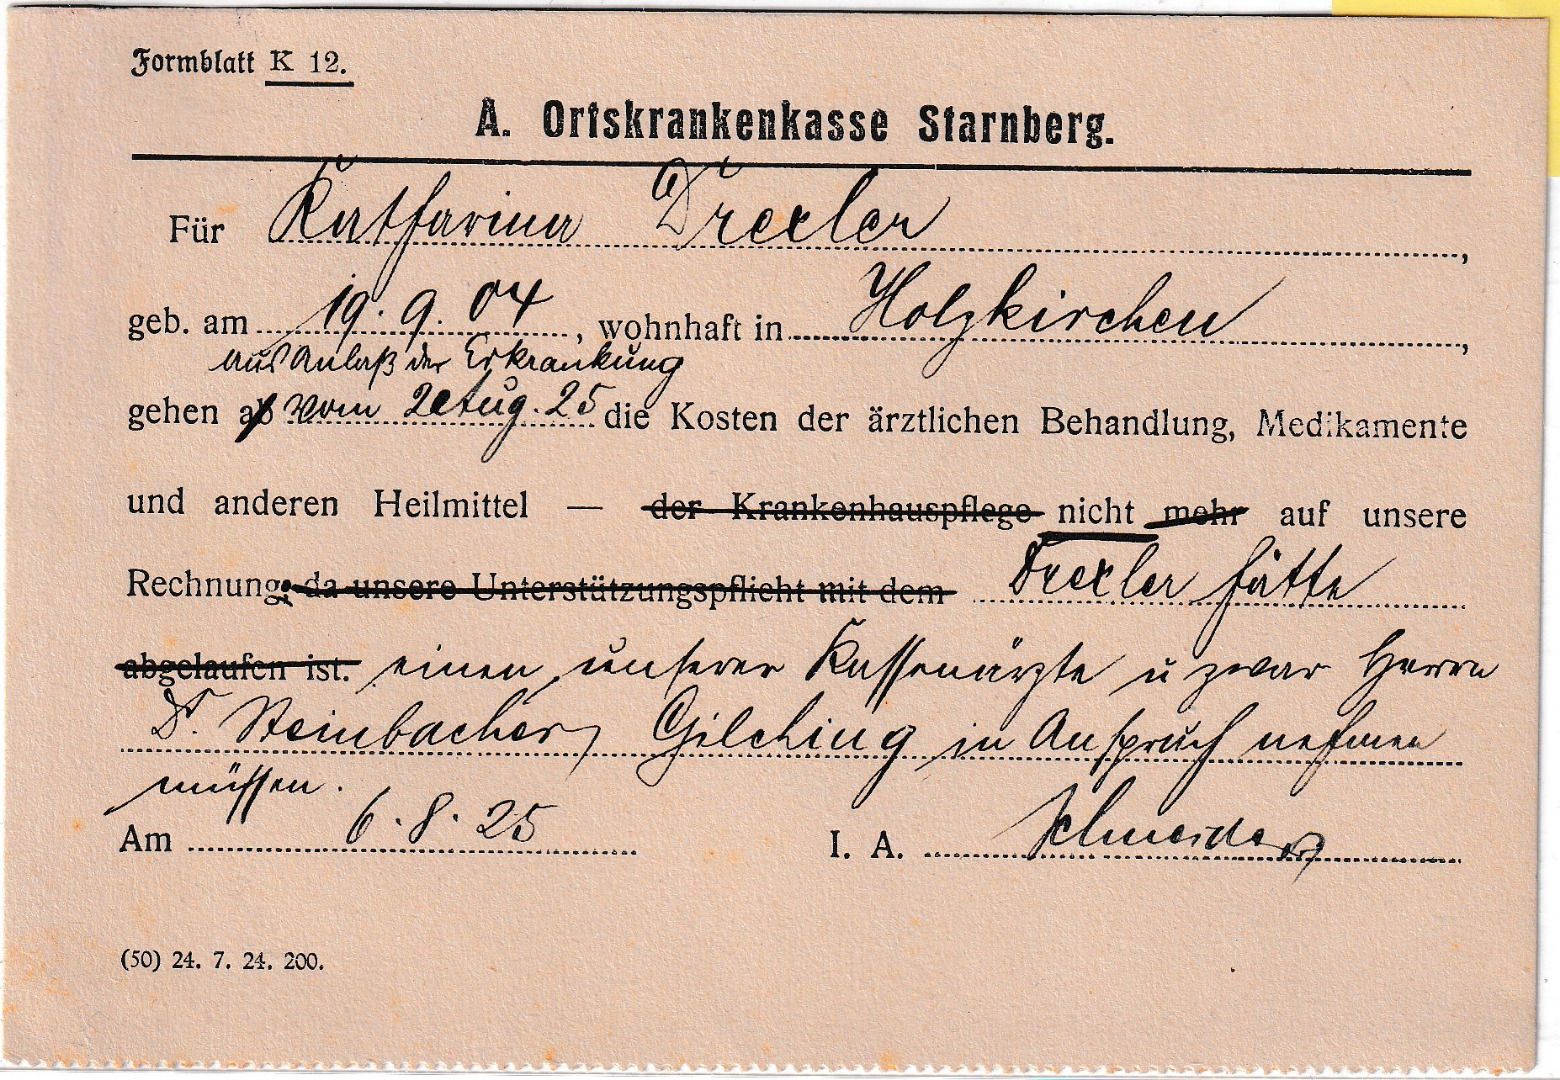 Formblatt K 12.
A. Ortskrankenkasse Starnberg.
Für Katharina Drexler,
geb. am 19. 9. 04, wohnhaft in Holzkirchen,
aus Anlaß der Erkrankung
gehen ab vom 2 Aug. 25 die Kosten der ärztlichen Behandlung, Medikamente
und anderen Heilmittel — der Krankenhauspflege nicht mehr auf unsere
Rechnung, da unsere Unterstützungspflicht mit dem Drexler hätte
abgelaufen ist. einen unserer Kassenärzte u zwar Herrn
Dr. Steinbacher, Gilching in Anspruch nehmen
müssen.
Am 6. 8. 25 I. A. Schneider
(50) 24. 7. 24. 200.